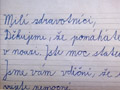 Milí zdravotníci,
Děkujeme, že pomáháte
v nouzi. Jste moc
Jsme vám vděční, že